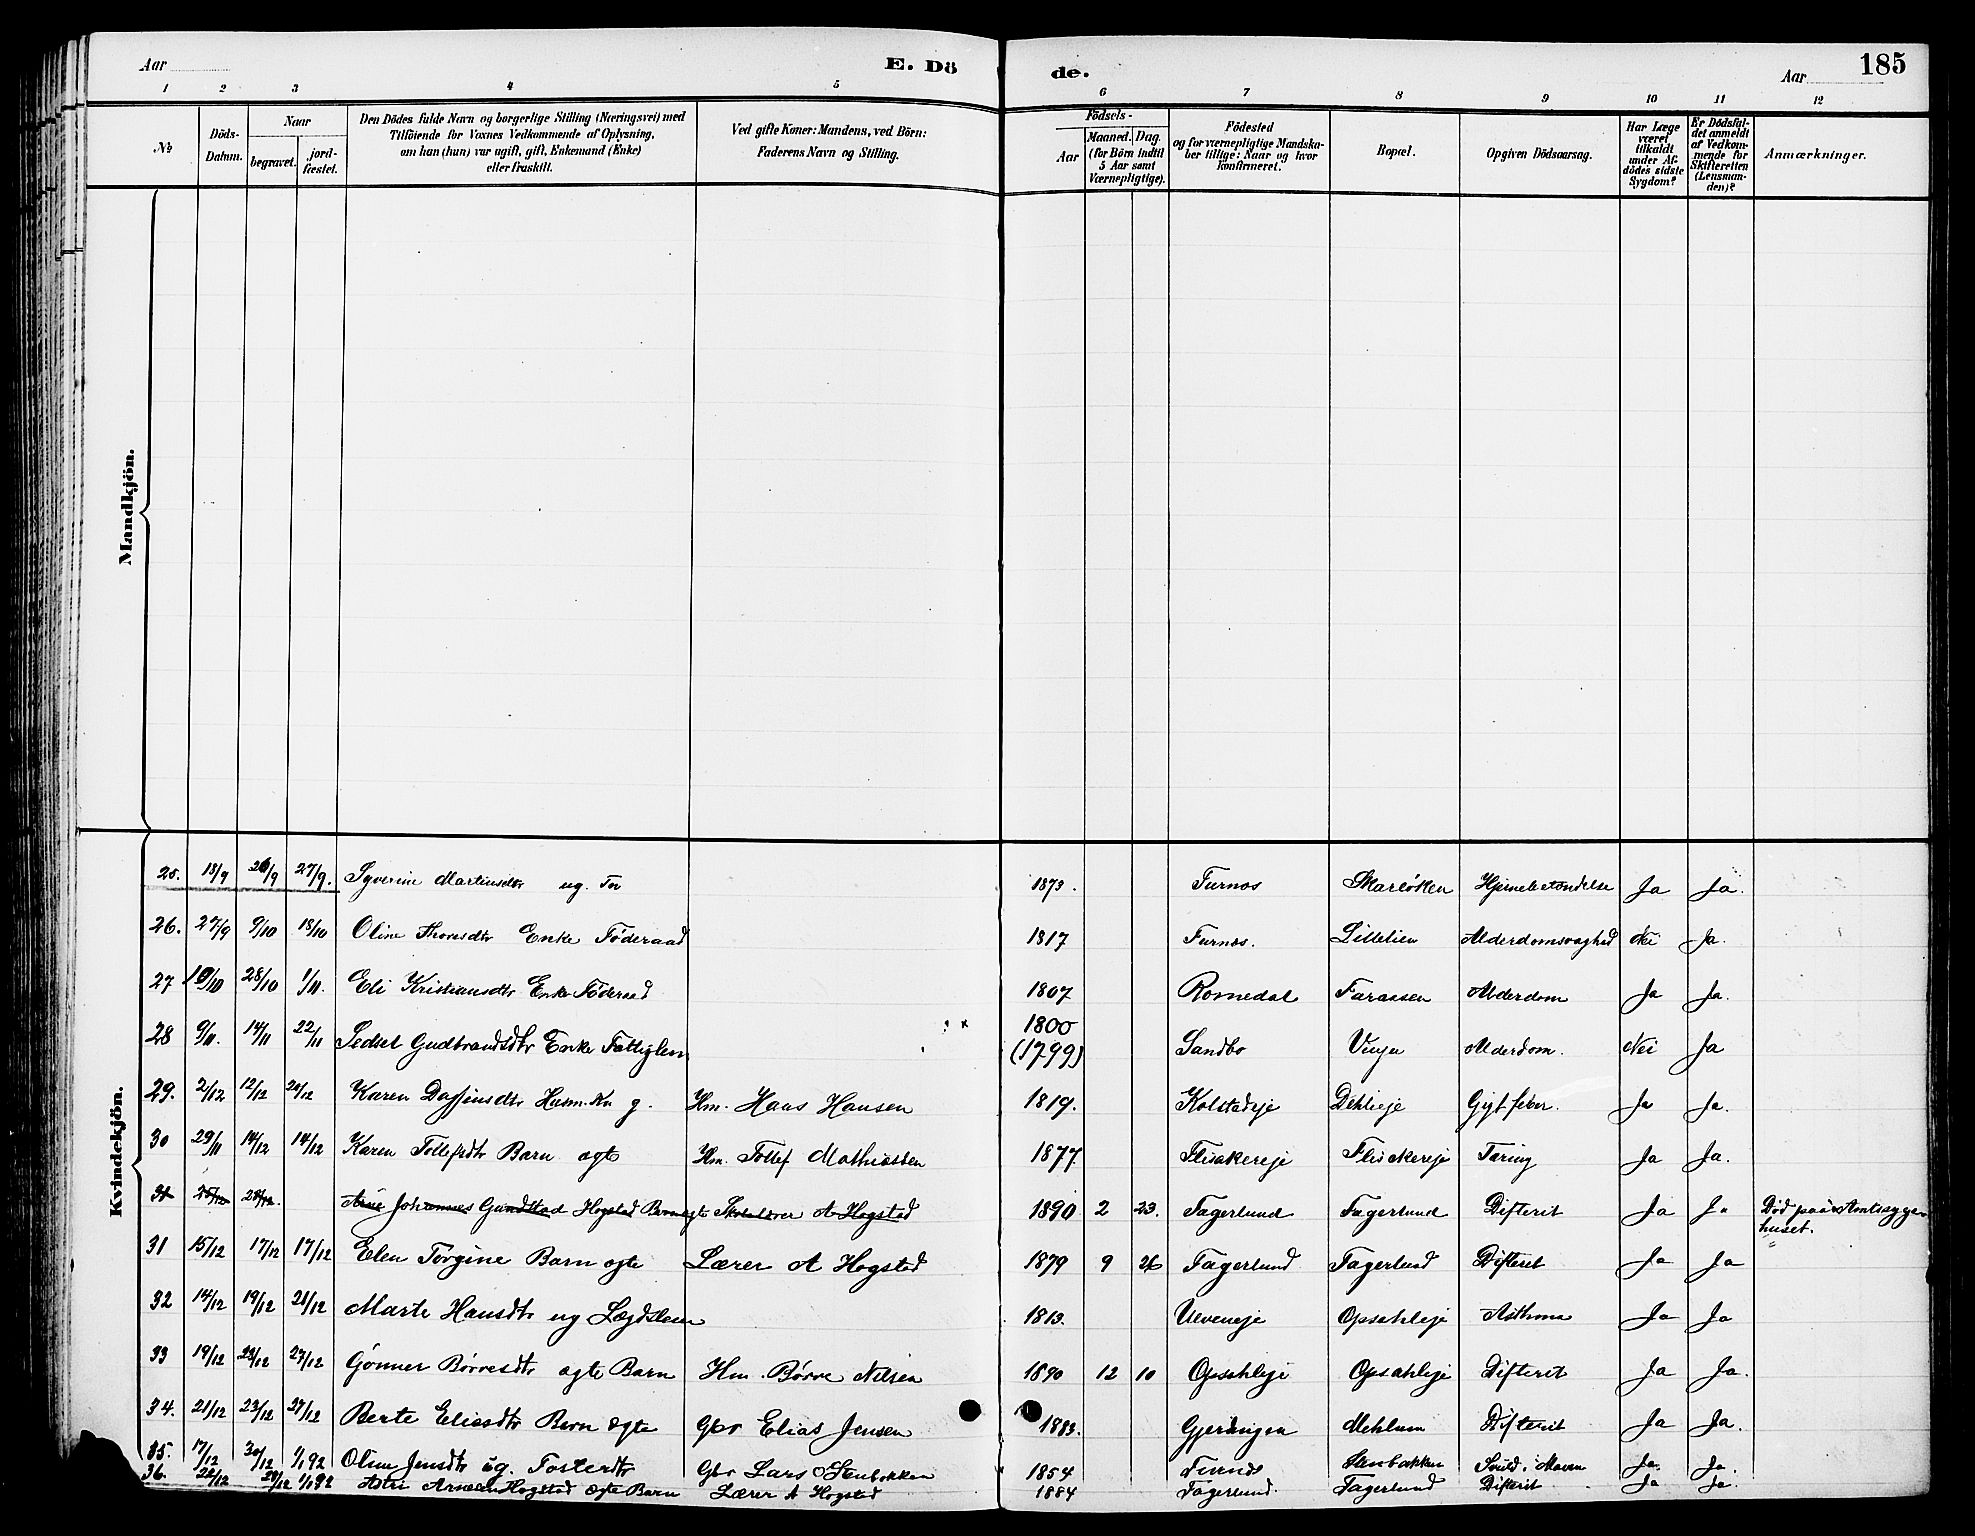 Aar
E. Dö
de.
Aar
185
1 2 3 4 5 6 7 8 9 10 11 12
№
Döds-
Datum.
Naar
begravet.
jord-
fæstet.
Den Dödes fulde Navn og borgerlige Stilling (Næringsvei) med
Tilföiende for Voxnes Vedkommende af Oplysning,
om han (hun) var ugift, gift, Enkemand (Enke)
eller fraskilt.
Ved gifte Koner: Mandens, ved Börn:
Faderens Navn og Stilling.
Födsels-
Aar
Maaned. Dag.
(for Börn indtil
5 Aar samt
Værnepligtige).
Födested
og for værnepligtige Mandska-
ber tillige: Naar og hvor
konfirmeret.
Bopæl.
Opgiven Dödsaarsag.
Har Læge
været
tilkaldt
under Af-
dödes sidste
Sygdom?
Er Dödsfal-
det anmeldt
af Vedkom-
mende for
Skifteretten
(Lensman-
den)?
Anmærkninger.
Mandkjön.
Kvindekjön.
25. 18/9 26/9 27/9. Syverine Martinsdtr ug. 1873. Furnæs Hjernebetændelse Ja Ja.
26. 27/9 9/10 18/10 Oline Thorsdtr Enke Föderaad 1817 Furnæs. Lillelien Alderdomsvaghed Nei Ja.
27 10/10 28/10 1/11. Eli Kristiansdtr Enke Föderaad 1807 Romedal Farassen Alderdom Ja Ja.
28 9/11. 14/11 22/11 Sedsel Gudbrandsdtr Enke Fattiglem 1800
(1799) Sandbo Alderdom. Nei Ja
29. 2/12 12/12 20/12 Karen Dafinsdtr Husm.Kn g. Hm. Haas Hansen 1819. Kolstadeje Dehlieje Gigtfeber. Ja Ja.
30 29/11 14/12 14/12 Karen Tollefsdtr Barn ægte Hm. Tollef Mathiassen 1877. Flisakereje Flisakereje Tæring Ja Ja.
31 25/12 28/12. Arne Johannes Gundstad Hogstad Barn ægte Skolelærer A Hogstad 1890 2 23. Fagerlund Fagerlund Difterit Ja Ja Död paa Amtssyge-
huset.
31 15/12 17/12 17/12 Elen Jörgine Barn ægte Lærer A Hogstad 1879 9 26 Fagerlund Fagerlund Difterit Ja Ja
32 14/12 19/12 21/12 Marte Hansdtr ug Lægdslem 1813. Ulveneje Opsahleje Asthma Ja Ja
33 19/12 23/12 27/12 Gönner Börresdtr ægte Barn Hm. Börre Nilsen 1890 12 10 Opsahleje Opsahleje Difterit Ja Ja.
34. 21/12 23/12 27/12 Berte Eliasdtr Barn ægte Gbr Elias Jensen 1883. Mehlum Difterit Ja Ja.
35. 17/12 30/12 1/1 92 Oline Jensdtr ug. Fosterdtr Gbr Lars Stenbakken 1854 Furnæs Stenbakken Ja. Ja.
36. 22/12 29/12 1/1 92 Astri Arnesen Hogstad ægte Barn Lærer A Hogstad 1884 Fagerlund. Fagerlund Difterit Ja Ja.